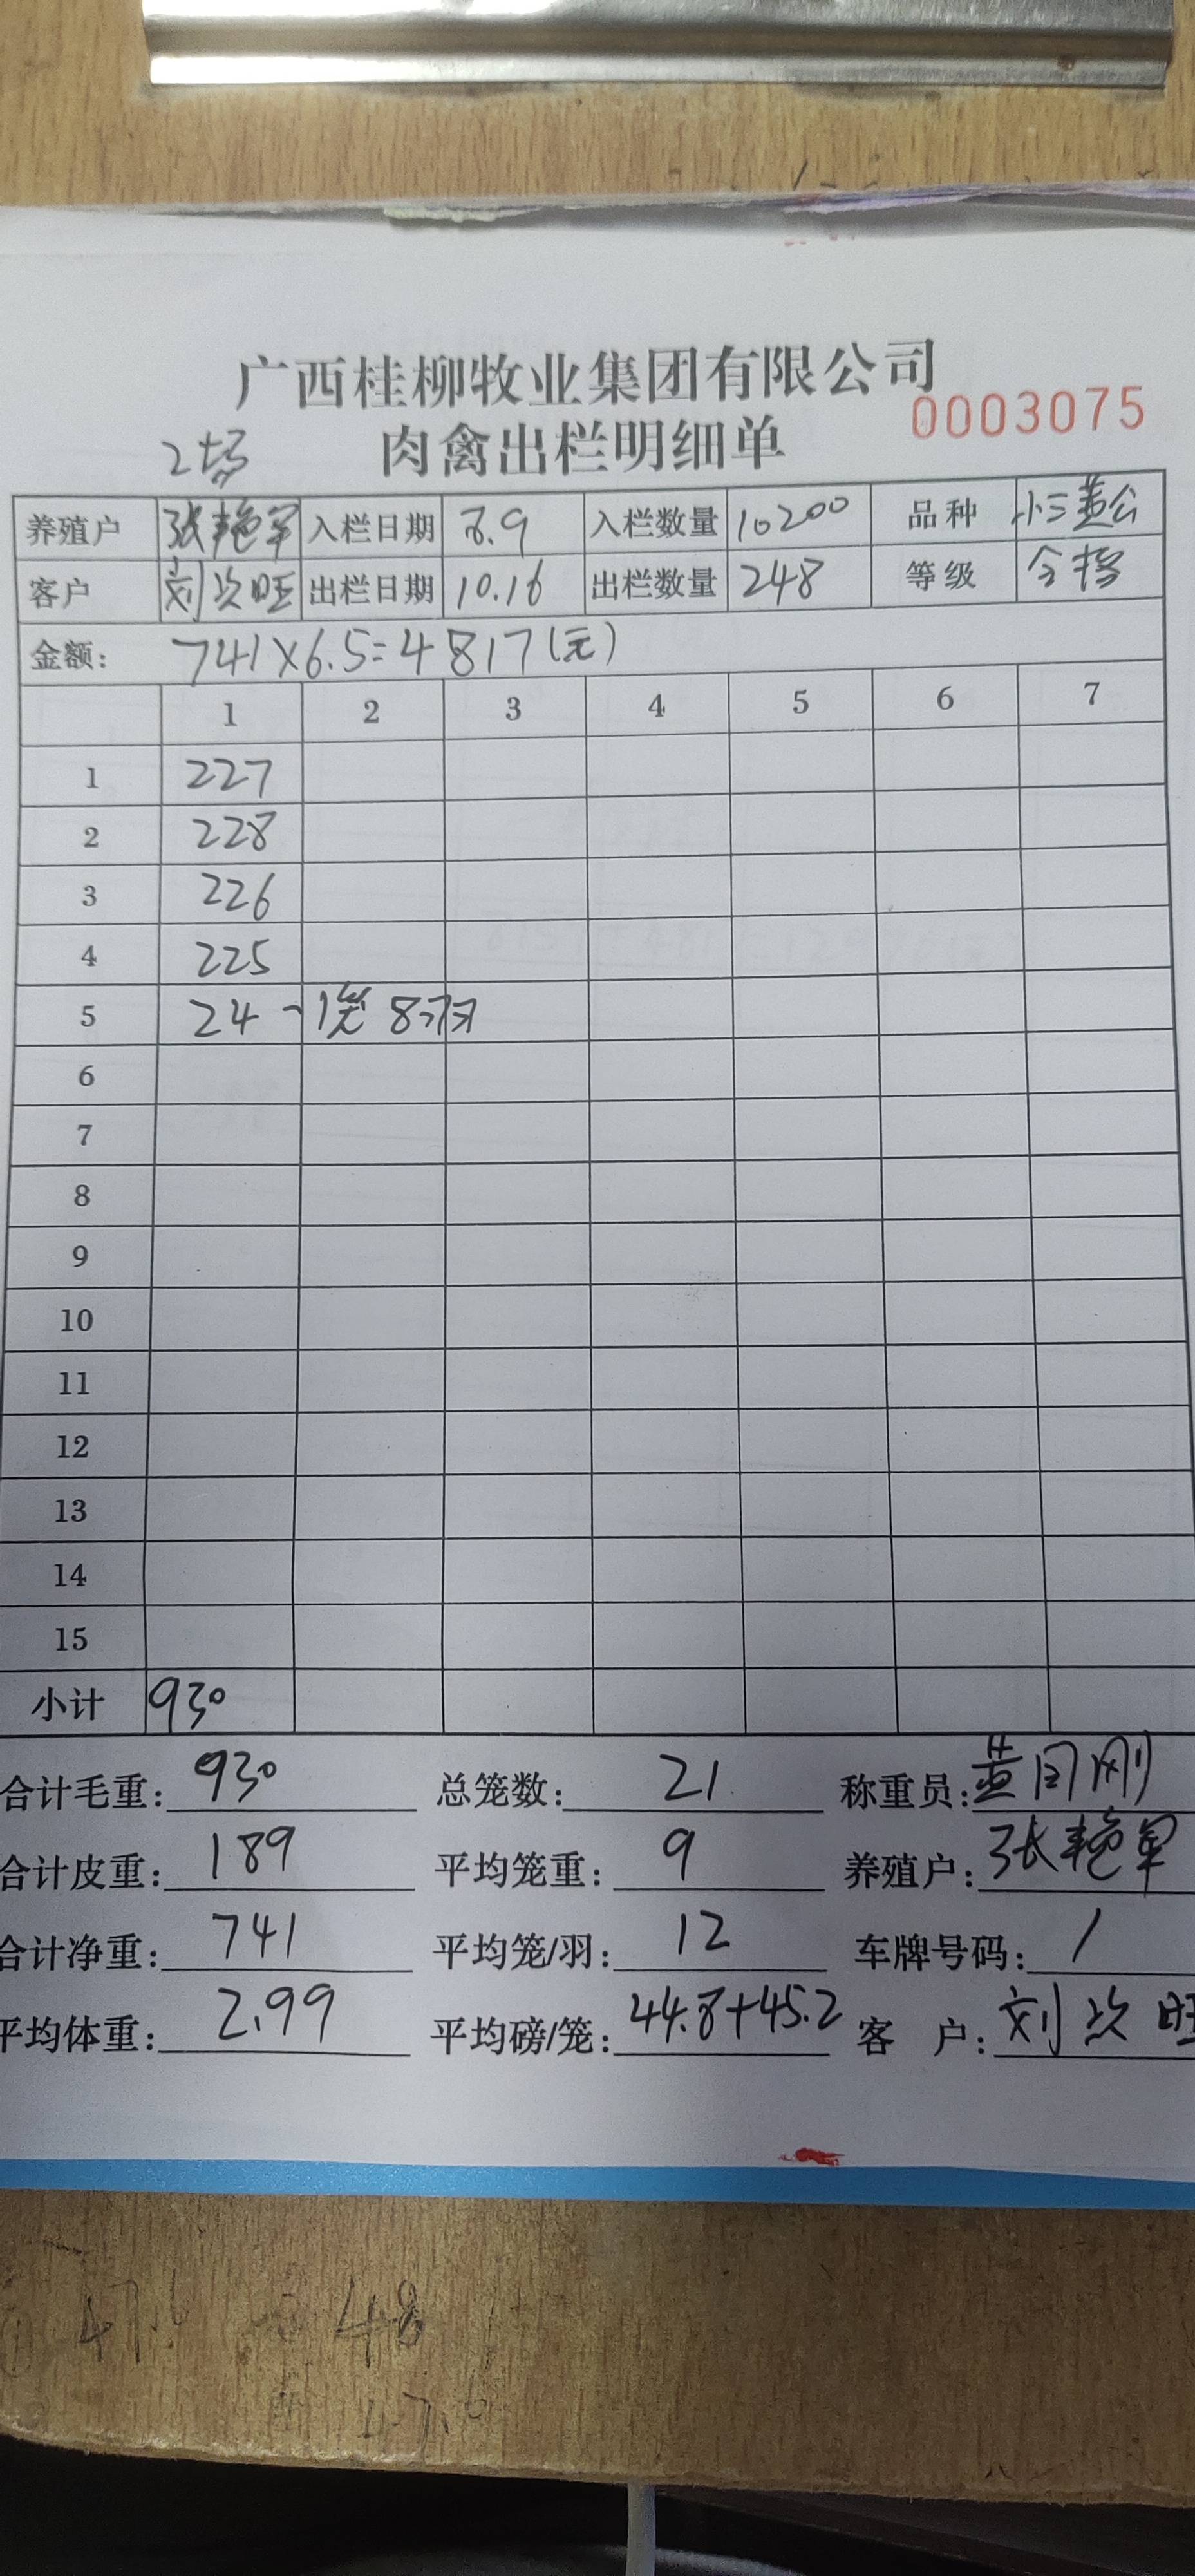 广西桂柳牧业集团有限公司
0003075
2场 肉禽出栏明细单
养殖户 张艳军 入栏日期 8.9 入栏数量 10200 品种 小三黄公
客户 刘次旺 出栏日期 10.16 出栏数量 248 等级 合格
金额: 741×6.5=4817(元)
1 2 3 4 5 6 7
1 227
2 228
3 226
4 225
5 24 -1笼 8羽
6
7
8
9
10
11
12
13
14
15
小计 930
合计毛重: 930 总笼数: 21 称重员: 黄刚
合计皮重: 189 平均笼重: 9 养殖户: 张艳军
合计净重: 741 平均笼/羽: 12 车牌号码: /
平均体重: 2.99 平均磅/笼: 44.8+45.2 客 户: 刘次旺
48